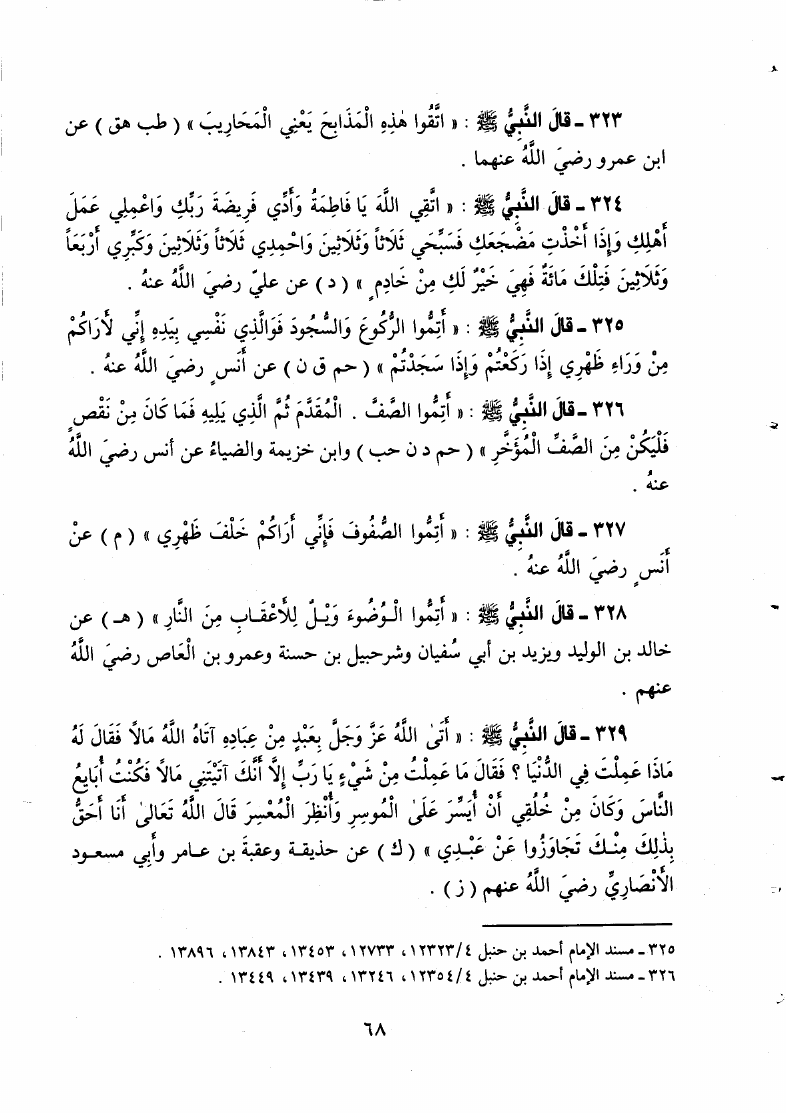 ٣٢٣ ـ قالَ النَّبِيُّ ﷺ : « اتَّقُوا هٰذِهِ الْمَذَابِحَ يَعْنِي الْمَحَارِيبَ » ( طب هق ) عن
ابن عمرو رضيَ اللَّهُ عنهما .
٣٢٤ ـ قالَ النَّبِيُّ ﷺ : « اتَّقِي اللَّهَ يَا فَاطِمَةُ وَأَدِّي فَرِيضَةَ رَبِّكِ وَاعْمَلِي عَمَلَ
أَهْلِكِ وَإِذَا أَخَذْتِ مَضْجَعَكِ فَسَبِّحِي ثَلَاثاً وَثَلَاثِينَ وَاحْمِدِي ثَلَاثاً وَثَلَاثِينَ وَكَبِّرِي أَرْبَعاً
وَثَلَاثِينَ فَتِلْكَ مَائَةٌ فَهِيَ خَيْرٌ لَكِ مِنْ خَادِمٍ » ( د ) عن عليّ رضيَ اللَّهُ عنهُ .
٣٢٥ ـ قالَ النَّبِيُّ ﷺ : « أَتِمُّوا الرُّكُوعَ وَالسُّجُودَ فَوَالَّذِي نَفْسِي بِيَدِهِ إِنِّي لأَرَاكُمْ
مِنْ وَرَاءِ ظَهْرِي إِذَا رَكَعْتُمْ وَإِذَا سَجَدْتُمْ » ( حم ق ن ) عن أَنسٍ رضيَ اللَّهُ عنهُ .
٣٢٦ ـ قالَ النَّبِيُّ ﷺ : « أَتِمُّوا الصَّفَّ . الْمُقَدَّمَ ثُمَّ الَّذِي يَلِيهِ فَمَا كَانَ مِنْ نَقْصٍ
فَلْيَكُنْ مِنَ الصَّفِّ الْمُؤَخَّرِ » ( حم د ن حب ) وابن خزيمة والضياءُ عن أنس رضيَ اللَّهُ
عنهُ .
٣٢٧ ـ قالَ النَّبِيُّ ﷺ : « أَتِمُّوا الصُّفُوفَ فَإِنِّي أَرَاكُمْ خَلْفَ ظَهْرِي » ( م ) عنْ
أَنَسٍ رضيَ اللَّهُ عنهُ .
٣٢٨ ـ قالَ النَّبِيُّ ﷺ : « أَتِمُّوا الْوُضُوءَ وَيْلٌ لِلْأَعْقَابِ مِنَ النَّارِ » ( هـ ) عن
خالد بن الوليد ويزيد بن أبي سُفيان وشرحبيل بن حسنة وعمرو بن الْعَاص رضيَ اللَّهُ
عنهم .
٣٢٩ ـ قالَ النَّبِيُّ ﷺ : « أَتَى اللَّهُ عَزَّ وَجَلَّ بِعَبْدٍ مِنْ عِبَادِهِ آتَاهُ اللَّهُ مَالاً فَقَالَ لَهُ
مَاذَا عَمِلْتَ فِي الدُّنْيَا ؟ فَقَالَ مَا عَمِلْتُ مِنْ شَيْءٍ يَا رَبِّ إِلاَّ أَنَّكَ آتَيْتَنِي مَالاً فَكُنْتُ أُبَايِعُ
النَّاسَ وَكَانَ مِنْ خُلُقِي أَنْ أُيَسِّرَ عَلَى الْمُوسِرِ وَأُنْظِرَ الْمُعْسِرَ قَالَ اللَّهُ تَعَالىٰ أَنَا أَحَقُّ
بِذٰلِكَ مِنْكَ تَجَاوَزُوا عَنْ عَبْدِي » ( ك ) عن حذيفة وعقبة بن عامر وأبي مسعود
الأَنْصَارِيِّ رضيَ اللَّهُ عنهم ( ز ) .
٣٢٥ ـ مسند الإمام أحمد بن حنبل ١٢٣٢٣/٤ ، ١٢٧٣٣ ، ١٣٤٥٣ ، ١٣٨٤٣ ، ١٣٨٩٦ .
٣٢٦ ـ مسند الإمام أحمد بن حنبل ١٢٣٥٤/٤ ، ١٣٢٤٦ ، ١٣٤٣٩ ، ١٣٤٤٩ .
٦٨